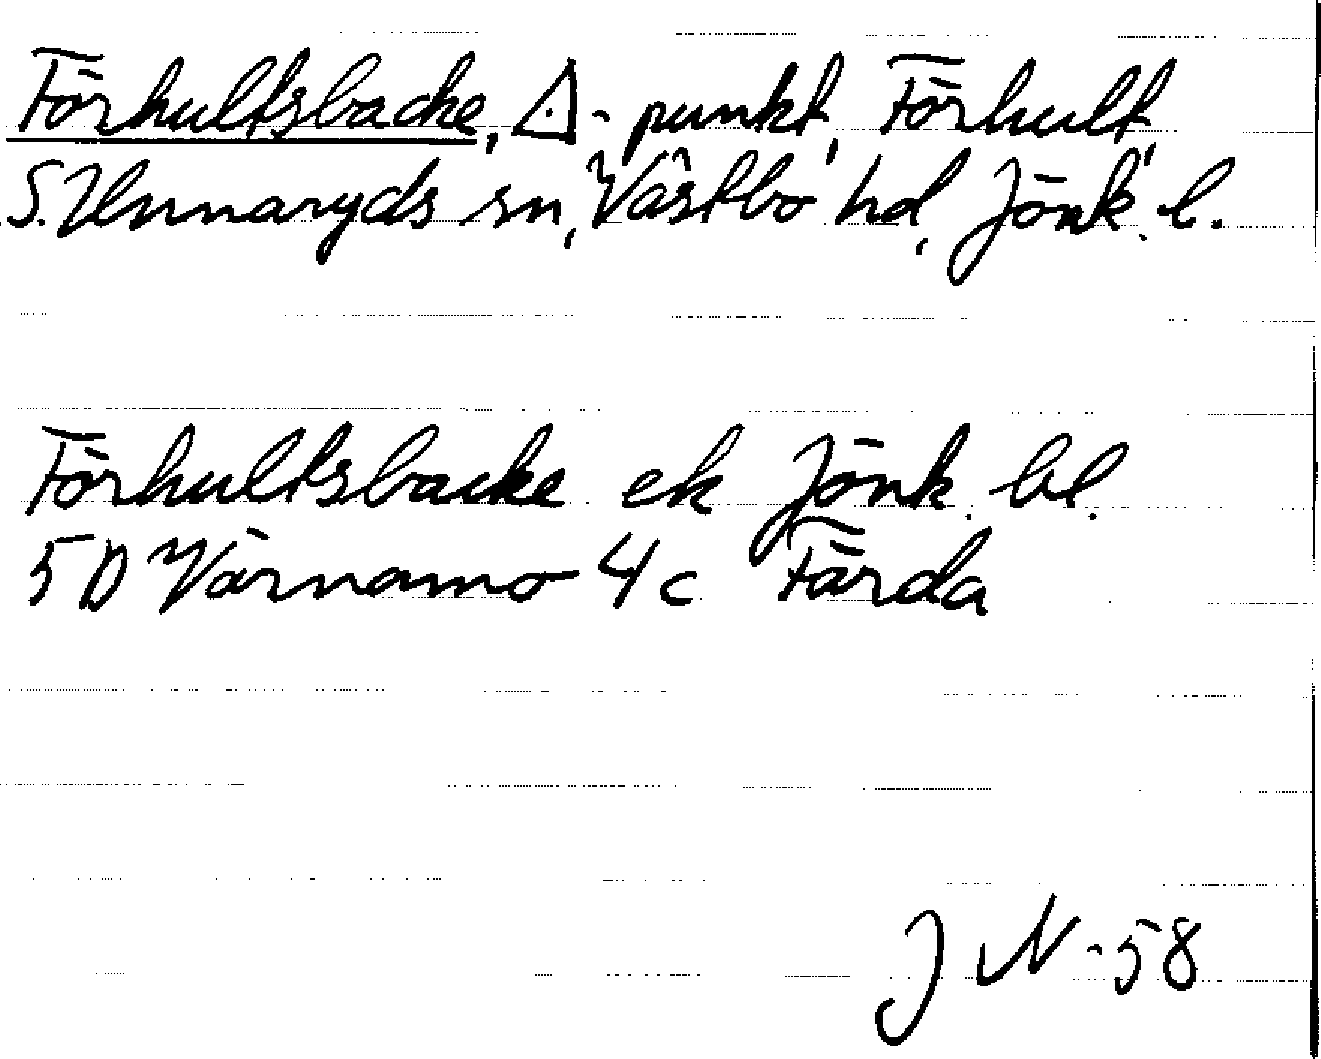 Förhultsbacke, △-punkt, Förhult,
S. Unnaryds sn, Västbo hd, Jönk. l.
Förhultsbacke ek Jönk. bl.
5D Värnamo 4c Färda
J N-58